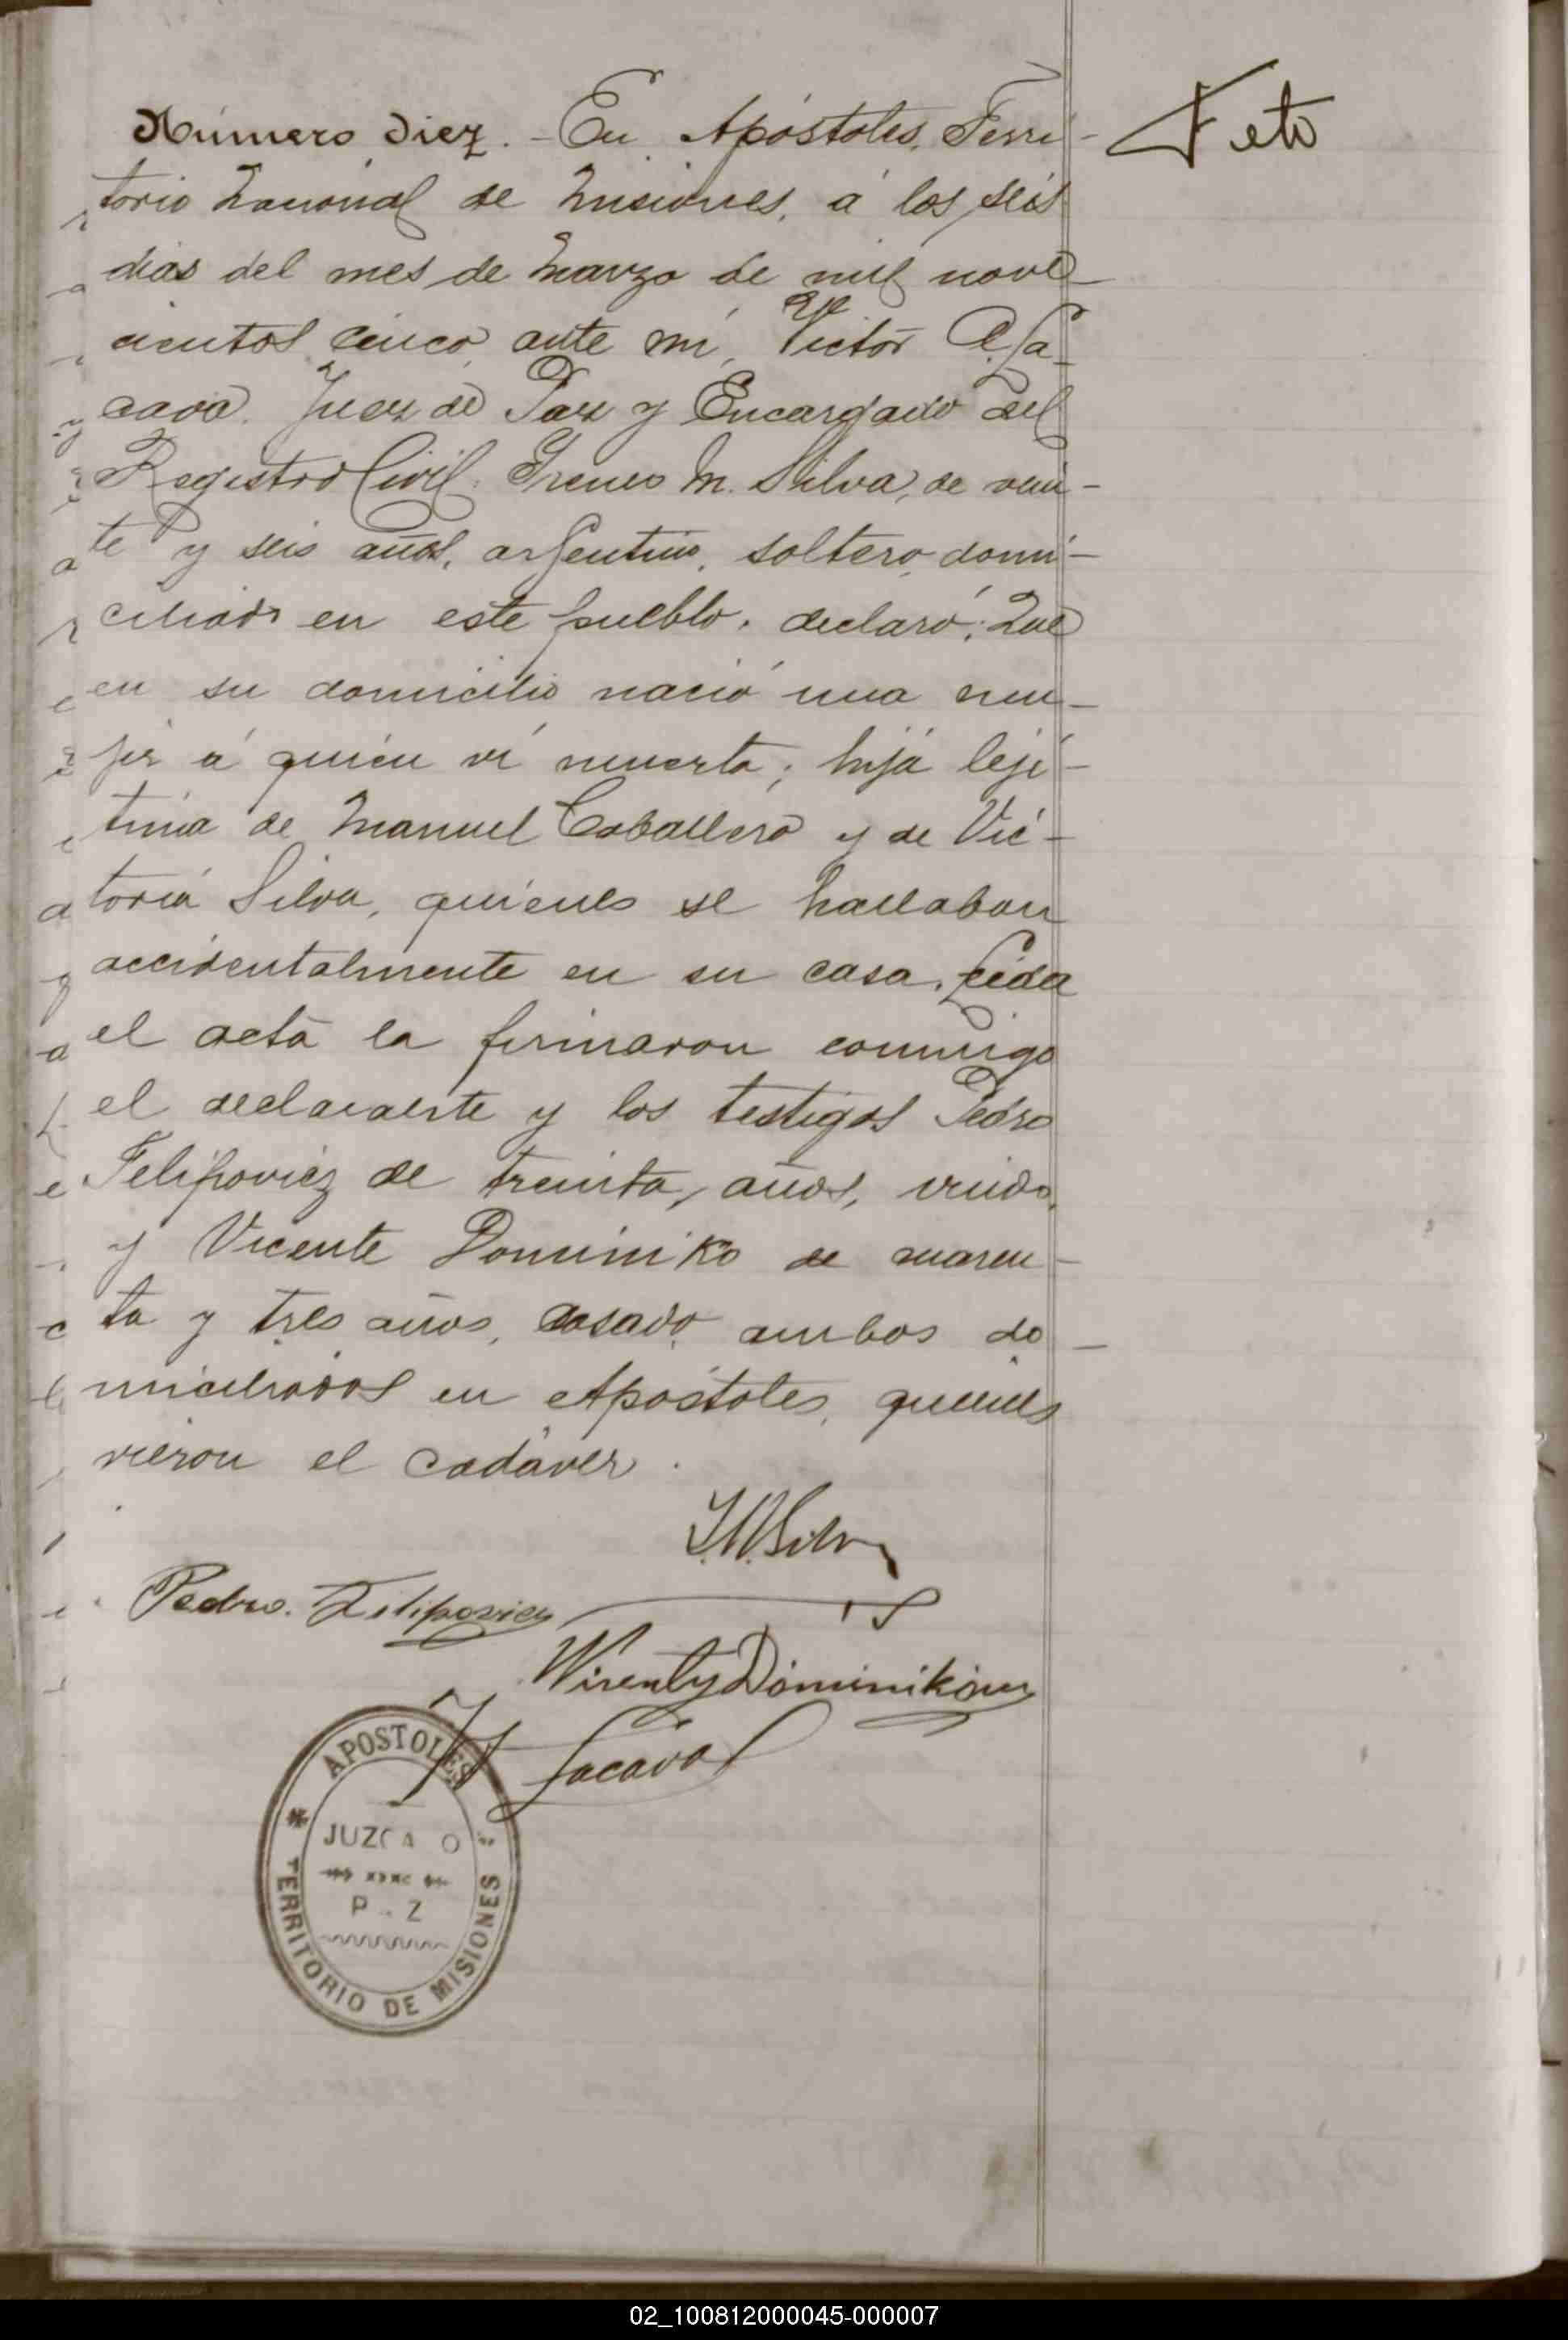 Número diez. - En Apóstoles, Terri-
torio Nacional de Misiones, á los seis
dias del mes de Marzo de mil nove-
cientos cinco, ante mi, Victor A. La-
cava. Juez de Paz y Encargado del
Registro Civil. Ireneo M. Silva, de vein-
te y seis años, argentino, soltero, domi-
ciliado en este pueblo, declaró: Que
en su domicilio nació una mu-
jer á quien ví muerta; hija leji-
tima de Manuel Caballero y de Vic-
toria Silva, quienes se hallaban
accidentalmente en su casa. Leida
el acta la firmaron conmigo
el declarante y los testigos Pedro
Felipovicz de treinta, años, viudo,
y Vicente Dominiko de cuaren-
ta y tres años, casado, ambos do-
miciliados en Apóstoles, quienes
vieron el cadáver.
Feto
I.M. Silva
Pedro. Filipovicz
Wicenty Dominików
V Lacava
APOSTOLES
JUZGADO
PAZ
TERRITORIO DE MISIONES
02_100812000045-000007